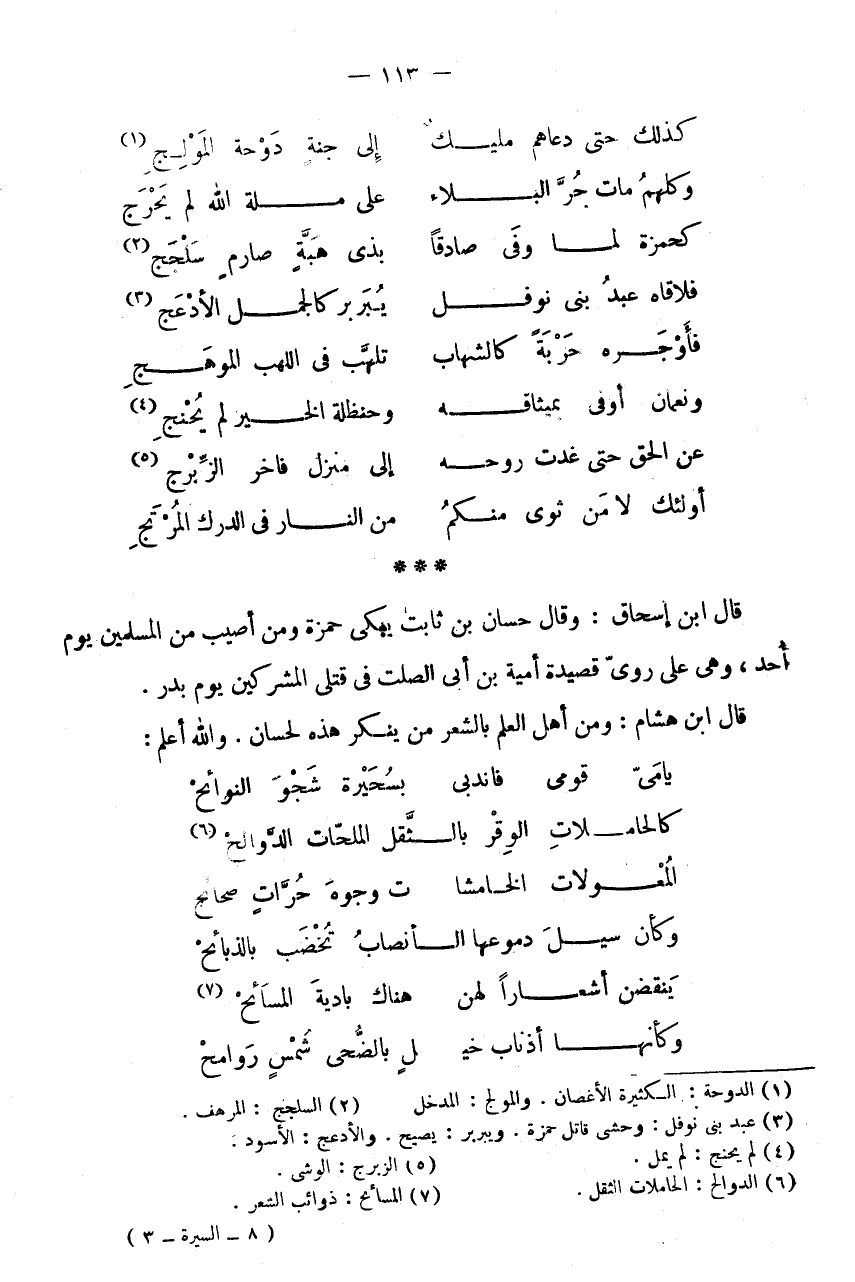 — ١١٣ —
كذلك حتى دعاهم مليـــك إلى جنةٍ دَوْحة المَوْلِـج ِ (١)
وكلهمُ مات حُرَّ البـــلاء على مـــلة الله لم يَحْرَج
كحمزة لمـــا وفَى صادقاً بذى هَبَّةٍ صارم ٍ سَلْجَج (٢)
فلاقاه عبدُ بنى نوفـــل يُبَربر كالجمـــل الأدْعَج (٣)
فأَوْجَـــره حَرْبَةً كالشهاب تلهَّب فى اللهب الموهَـــج ِ
ونعمان أوفى بميثاقـــه وحنظلة الخـــير لم يُحْنج ِ (٤)
عن الحق حتى غدت روحـــه إلى منزل فاخر الزِّبْرج (٥)
أولئك لا مَن ثوى منـــكمُ من النـــار فى الدرك المُرْتَج ِ
* * *
قال ابن إسحاق : وقال حسان بن ثابت يبكى حمزة ومن أصيب من المسلمين يوم
أحد ، وهى على روىّ قصيدة أمية بن أبى الصلت فى قتلى المشركين يوم بدر .
قال ابن هشام : ومن أهل العلم بالشعر من ينـكر هذه لحسان . والله أعلم :
يامَىّ قومى فاندبى بسُحَيْرة شَجْوَ النوائحْ
كالحامـــلاتِ الوِقْر بالـــثَّقل الملحّات الدَّوالحْ (٦)
المُعْـــولات الخامشا ت وجوهَ حُرَّاتٍ صحائح
وكأن سيـــلَ دموعها الـــأنصابُ تُخْضَب بالذبائحْ
يَنقضن أشعـــاراً لهن هناك باديةَ المسَائحْ (٧)
وكأنهـــا أذناب خيـ ـلٍ بالضُّحى شُمْسٍ رَوامحْ
(١) الدوحة : الـكثيرة الأغصان . والمولج : المدخل (٢) السلجج : المرهف .
(٣) عبد بنى نوفل : وحشى قاتل حمزة . ويبربر : يصيح . والأدعج : الأسود .
(٤) لم يحنج : لم يمل . (٥) الزبرج : الوشى .
(٦) الدوالح : الحاملات الثقل . (٧) المسائح : ذوائب الشعر .
( ٨ – السيرة – ٣ )